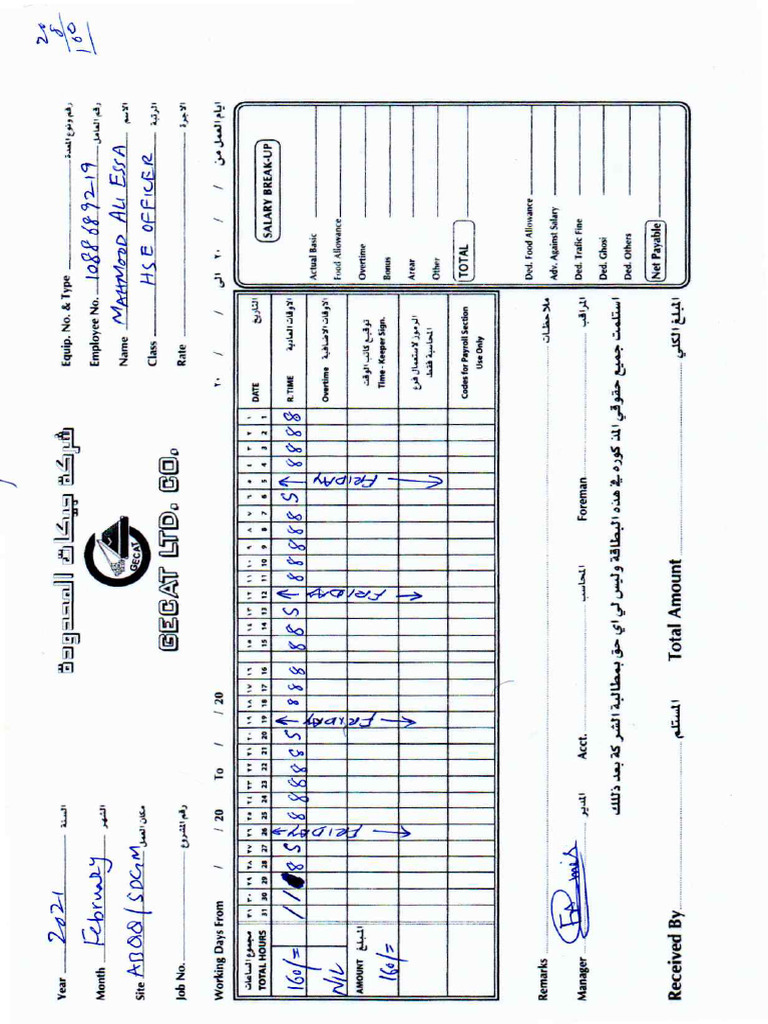 20
8
160
شركة جيكات المحدودة
GECAT
GECAT LTD. CO.
Year 2021 السنة
Month February الشهر
Site ABQQ/SDGM مكان العمل
Job No. رقم المشروع
Equip. No. & Type رقم ونوع المعدة
Employee No. 1088689219 رقم العامل
Name MAHMOOD ALI ESSA الاسم
Class HSE OFFICER الرتبة
Rate الاجرة
Working Days From / / 20 To / / 20 ٢٠ / / الى ٢٠ / / ايام العمل من
مجموع الساعات ٣١ ٣٠ ٢٩ ٢٨ ٢٧ ٢٦ ٢٥ ٢٤ ٢٣ ٢٢ ٢١ ٢٠ ١٩ ١٨ ١٧ ١٦ ١٥ ١٤ ١٣ ١٢ ١١ ١٠ ٩ ٨ ٧ ٦ ٥ ٤ ٣ ٢ ١ التاريخ
TOTAL HOURS 31 30 29 28 27 26 25 24 23 22 21 20 19 18 17 16 15 14 13 12 11 10 9 8 7 6 5 4 3 2 1 DATE
160/= / / 8 S FRIDAY 8 8 8 8 S FRIDAY 8 8 8 8 8 S FRIDAY 8 8 8 8 8 S FRIDAY 8 8 8 8 R. TIME الاوقات العادية
N/L Overtime الاوقات الاضافية
AMOUNT المبلغ توقيع كاتب الوقت
160/= Time - Keeper Sign.
الرموز لاستعمال فرع المحاسبة فقط
Codes for Payroll Section
Use Only
SALARY BREAK-UP
Actual Basic
Food Allowance
Overtime
Bonus
Arear
Other
TOTAL
Ded. Food Allowance
Adv. Against Salary
Ded. Trafic Fine
Ded. Ghosi
Ded. Others
Net Payable
Remarks ملاحظات
Manager المدير Acct. المحاسب Foreman المراقب
استلمت جميع حقوقي المذكوره في هذه البطاقة وليس لي اي حق بمطالبة الشركة بعد ذللك
Received By المستلم Total Amount المبلغ الكلي